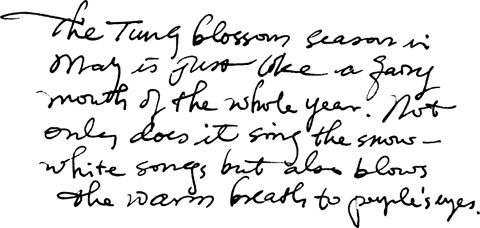 The Tung blossom season in
May is just like a fairy
month of the whole year. Not
only does it sing the snow-
white songs but also blows
the warm breath to people's eyes.